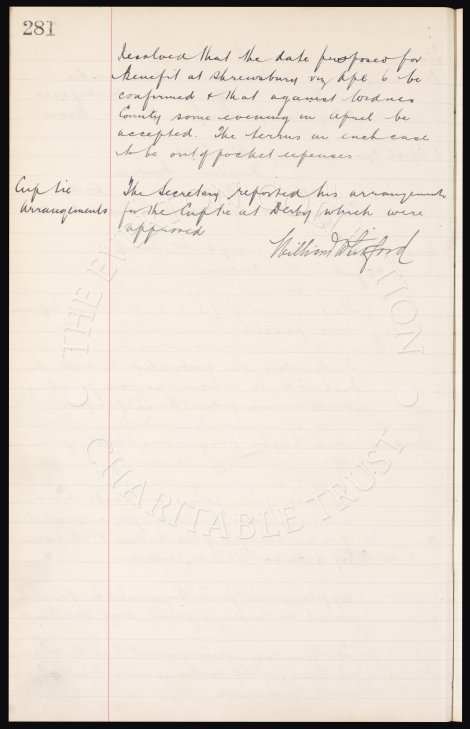 281
Resolved that the date proposed for
Benefit at Shrewsbury viz Apl 6 be
confirmed & that against Widnes
County some evening in April be
accepted. The terms in each case
to be out of pocket expenses
Cup tie
arrangements
The Secretary reported his arrangements
for the Cup tie at Derby which were
approved
William Whitford
THE EVERTON COLLECTION
CHARITABLE TRUST